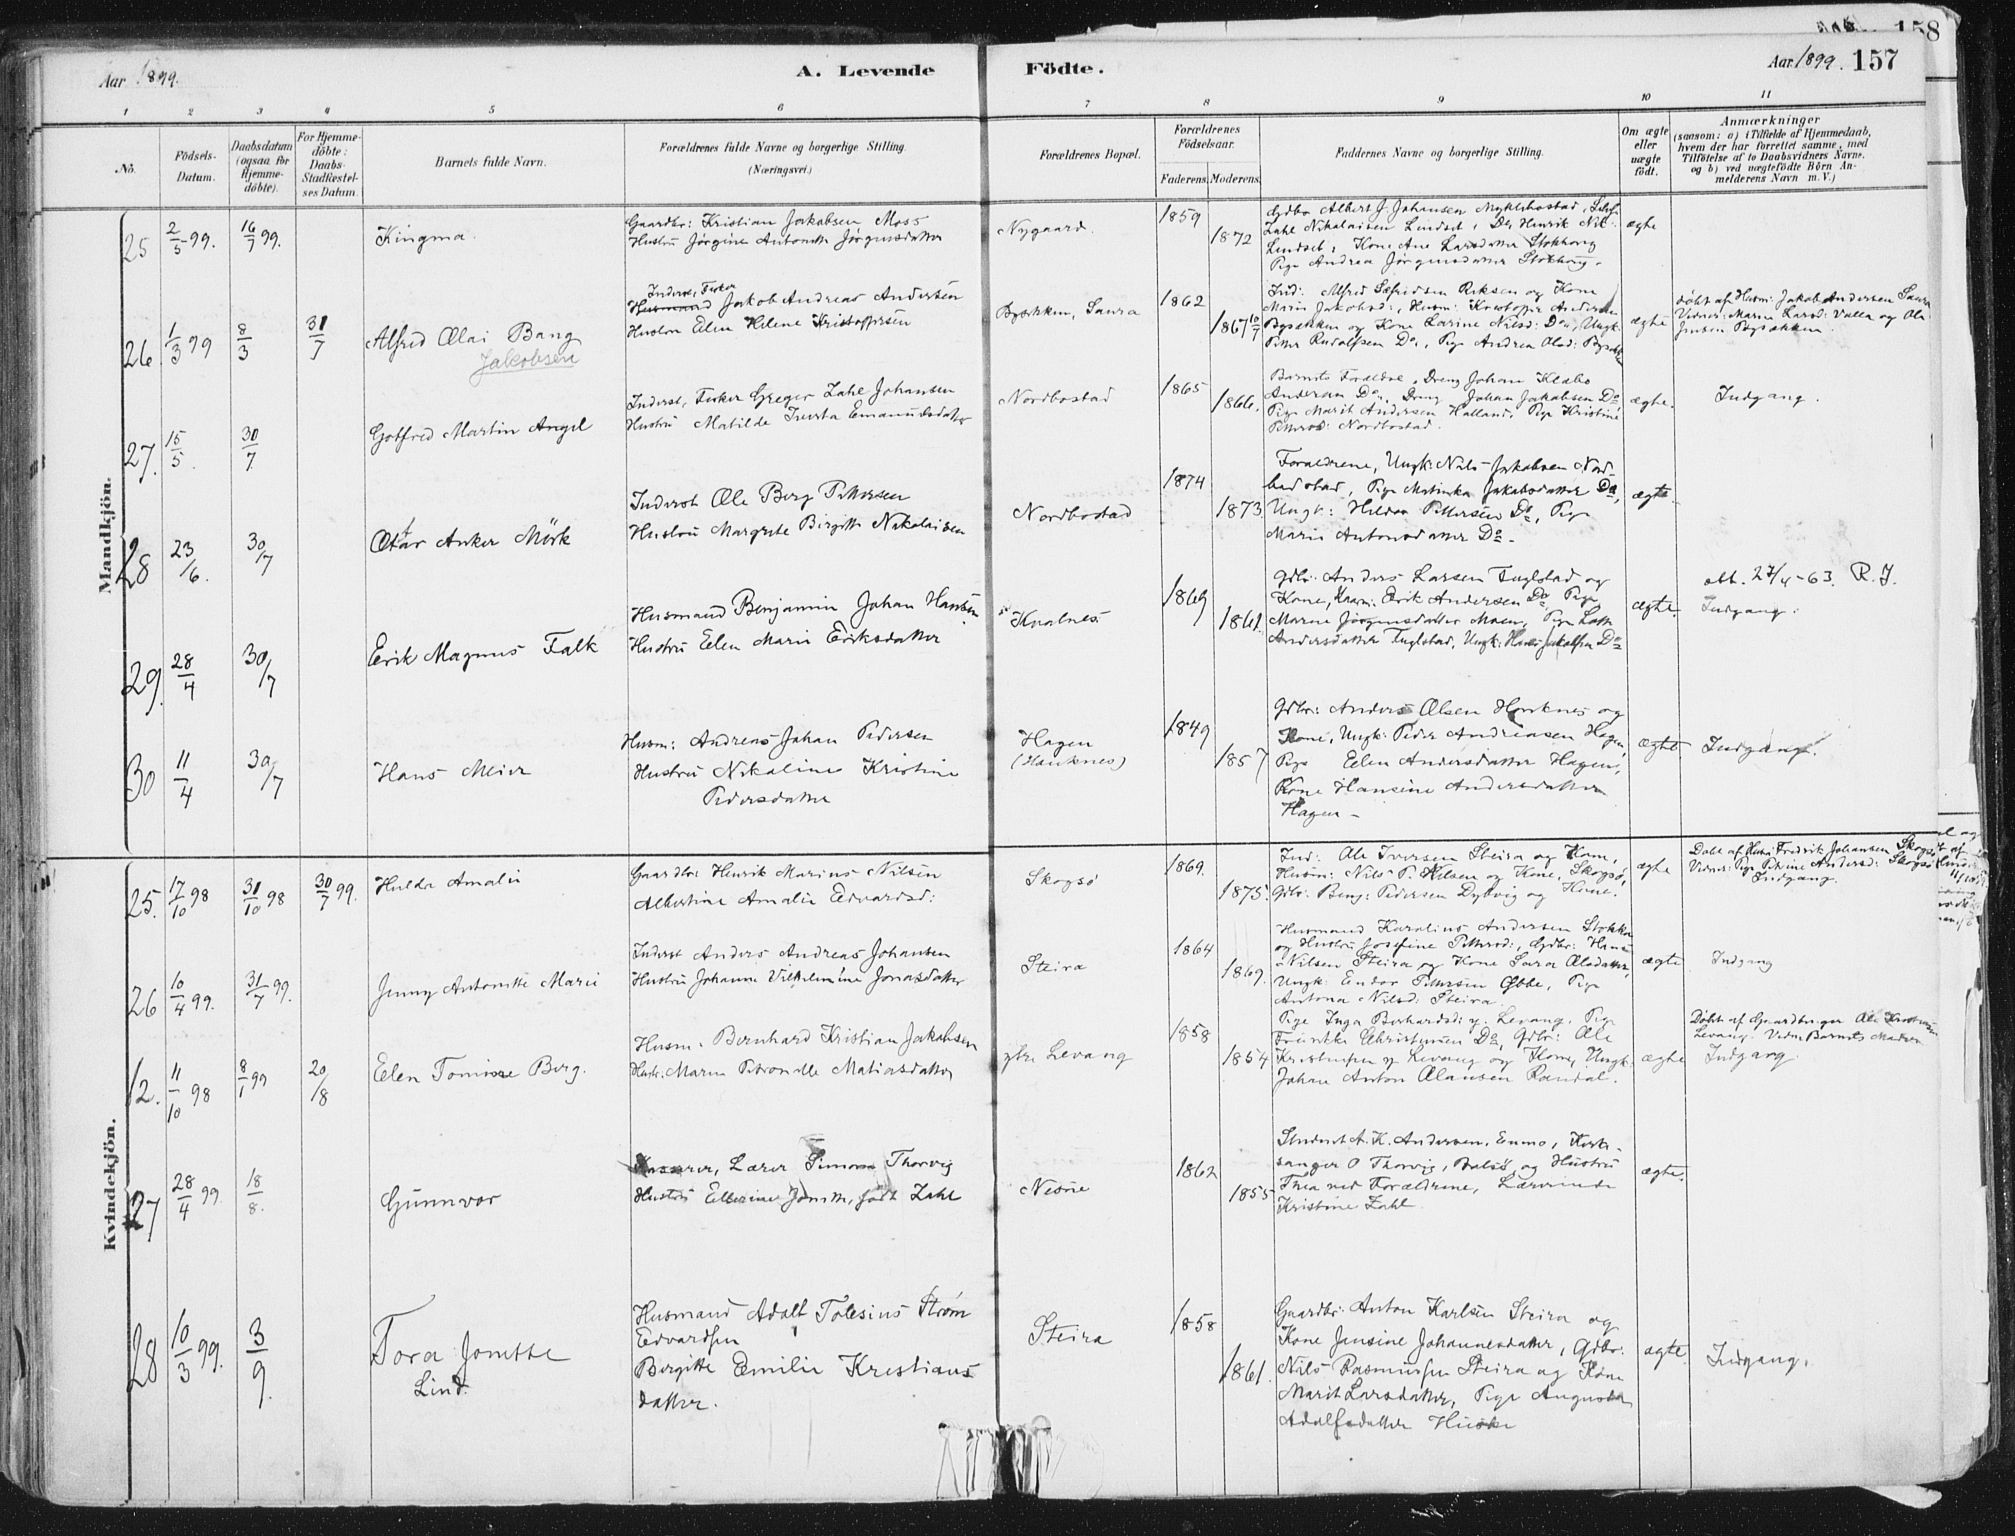 158
Aar 1899.
A. Levende
Födte.
Aar 1899. 157
1 2 3 4 5 6 7 8 9 10 11
No.
Födsels-
Datum.
Daabsdatum
(ogsaa for
Hjemme-
döbte).
For Hjemme-
döbte:
Daabs-
Stadfæstel-
ses Datum.
Barnets fulde Navn.
Forældrenes fulde Navne og borgerlige Stilling.
(Næringsvei.)
Forældrenes Bopæl.
Forældrenes
Födselsaar.
Faderens. Moderens.
Faddernes Navne og borgerlige Stilling.
Om ægte
eller
uægte
födt.
Anmærkninger
(saasom: a) i Tilfælde af Hjemmedaab,
hvem der har forrettet samme, med
Tilföielse af to Daabsvidners Navne.
og b) ved uægtefödte Börn An-
melderens Navn m. V.)
Mandkjön.
25 2/5 99. 16/7 99.
Kingma.
Gaardbr: Kristian Jakobsen Moss
Hustru Jørgine Antonette Jørgensdatter
Nygaard.
1859
1872
Gdbr Albert J. Johansen Myklebostad,
Zahl Nikolaisen Lindset, Do Henrik Nik:
Lindset, Kone Ane Larsdatter Stokhaug
Pige Andrea Jørgensdatter Stokhaug.
ægte
26. 1/3 99 8/3 31/7
Alfred Olai Bang
Jakobsen
Inderst, Fisker
Husmand Jakob Andreas Andersen
Hustru Elen Helene Kristoffersen
Bysækken, Saura
1862
1867 10/7
Ind: Alfred Sefridsen Riksen og Kone
Marie Jakobsd:, Husm: Kristoffer Andersen
Bysækken og Kone Larine Nilsd: Do, Ungk:
Petter Rudolfsen Do, Pige Andrea Olsd: Bysækken
ægte
døbt af Husm: Jakob Andersen Saura
Vidner: Maren Larsd: Valla og Ole
Jensen Bysækken
27. 15/5. 30/7
Gotfred Martin Angel
Inderst, Fisker Greger Zahl Johansen
Hustru Matilde Iverta Emanuelsdatter
Nordbostad
1865
1866.
Barnets Forældre, Dreng Johan Klæbo
Andersen Do, Dreng Johan Jakobsen Do
Pige Marit Andersen Halland, Pige Kristine
Pettersd: Nordbostad.
ægte.
Indgang.
28 23/6. 30/7
Otar Anker Mörk
Inderst Ole Berg Pettersen
Hustru Margrete Birgitte Nikolaisen
Nordbostad
1874
1873
Forældrene, Ungk: Nils Jakobsen Nord-
bostad, Pige Matinka Jakobsdatter Do,
Ungk: Hildor Pettersen Do, Pige
Marie Antonsdatter Do.
ægte
29. 28/4 30/7
Erik Magnus Falk
Husmand Benjamin Johan Hansen
Hustru Elen Marie Eriksdatter
Kvalnes
1869
1861.
Gdbr: Anders Larsen Fuglstad og
Kone, Husm: Erik Andersen Do, Pige
Marine Jørgensdatter Moen, Pige Lotte
Andersdatter Fuglstad, Ungk: Hans Jakobsen Do
ægte.
obt. 27/4-63. R.J.
Indgang.
30 11/4 30/7
Hans Meier
Husm: Andreas Johan Pedersen
Hustru Nikoline Kristine
Pedersdatter
Hagen
(Hauknes)
1849
1857
Gdbr: Anders Olsen Hauknes og
Kone, Ungk: Peder Andreasen Hagen,
Pige Elen Andersdatter Hagen,
Kone Hansine Andersdatter
Hagen.
ægte.
Indgang.
Kvindekjön.
25. 17/10 98 31/10 98 30/7 99.
Hulda Amalie
Gaardbr: Henrik Marius Nilsen
Albertine Amalie Edvardsd:
Skogsö
1869.
1875.
Ind: Ole Iversen Steira og Kone,
Husm: Nils P. Nilsen og Kone, Skogsö,
Gdbr: Benj: Pedersen Dybvig og Kone.
ægte
Døbt af Husm: Fredrik Johansen Skogsö
Vidner: Pige Petrine Andersd: Skogsö
Indgang.
26 10/4 99. 31/7 99.
Jenny Antonette Marie
Inderst Anders Andreas Johansen
Hustru Johanne Vilhelmine Jonasdatter
Steira
1864
1869.
Husmand Karolius Andersen Stokka
og Hustru Josefine Pettersd:, Gdbr: Hans
Nilsen Steira og Kone Sara Olsdatter,
Ungk: Endor Pettersen Øbbe, Pige
Antona Nilsd: Steira.
ægte
Indgang
12. 11/10 98 8/1 99 20/8
Elen Tomine Berg.
Husm. Bernhard Kristian Jakobsen
Hustr: Maren Petronelle Matiasdatter
ytre Levang
1858
1854
Pige Inga Berhardsd: y. Levang, Pige
Christensen Do, Gdbr: Ole
Kristensen y Levang og Kone, Ungk:
Johan Anton Olausen Randal.
ægte
Døbt af Gaardbruger Ole Kristensen
Levang. Vidne Barnets Moder
Indgang.
27 28/4 99. 18/8.
Gunnvor
Lærer Simon Thorvig
Hustru Ellerine Jonette, født Zahl
Nesne
1862
1855
Student A. K. Andersen, Enmo, Kirke-
sanger O Thorvig, Dalsö, og Hustru
Thea ved Forældrene, Lærerinde
Kristine Zahl
ægte.
28 10/3 99. 3/9.
Tora Jonette
Lind.
Husmand Adolf Tolesius Strøm
Edvardsen
Birgitte Emilie Kristians
datter.
Steira
1858
1861.
Gaardbr: Anton Karlsen Steira og
Kone Jensine Johannesdatter, Gdbr:
Nils Rasmussen Steira og Kone
Marit Larsdatter, Pige Augusta
Adolfsdatter Husbe
ægte.
Indgang.